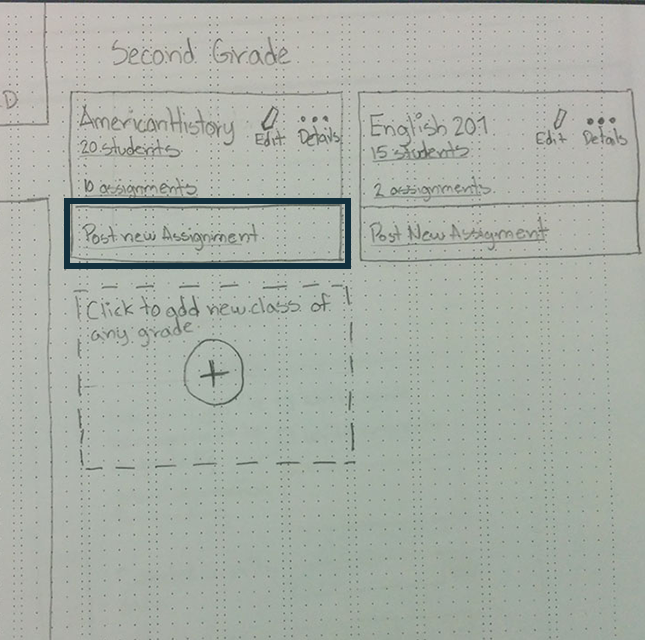 D
Second Grade
American History
Edit
Details
20 students
10 assignments
Post new Assignment
English 201
Edit
Details
15 students
2 assignments
Post New Assigment
Click to add new class of
any grade
+